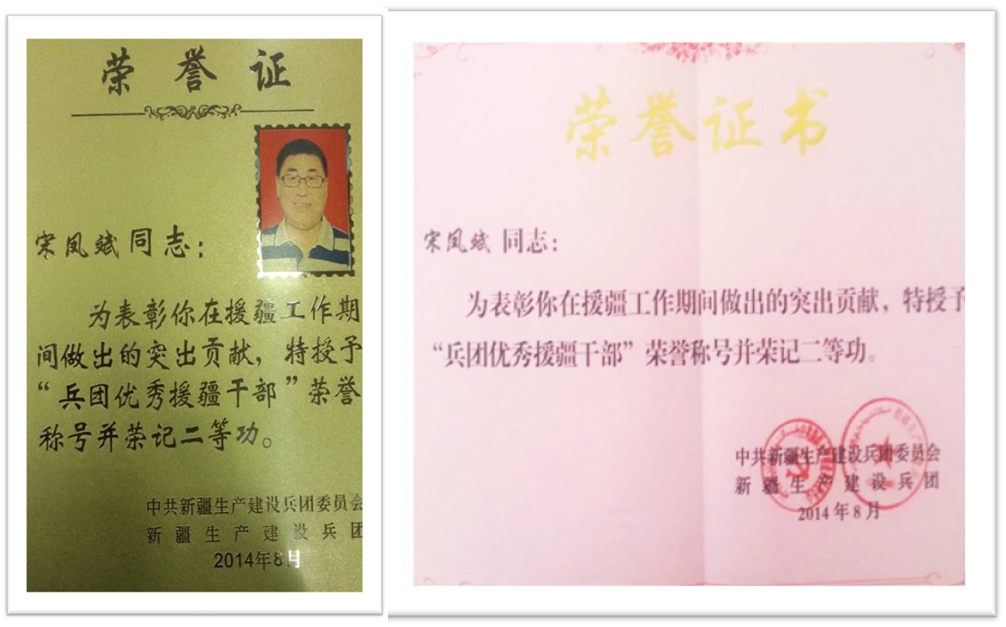 荣誉证
宋凤斌同志：
为表彰你在援疆工作期
间做出的突出贡献，特授予
“兵团优秀援疆干部”荣誉
称号并荣记二等功。
中共新疆生产建设兵团委员会
新疆生产建设兵团
2014年8月
荣誉证书
宋凤斌 同志：
为表彰你在援疆工作期间做出的突出贡献，特授予
“兵团优秀援疆干部”荣誉称号并荣记二等功。
中共新疆生产建设兵团委员会
新疆生产建设兵团
2014年8月